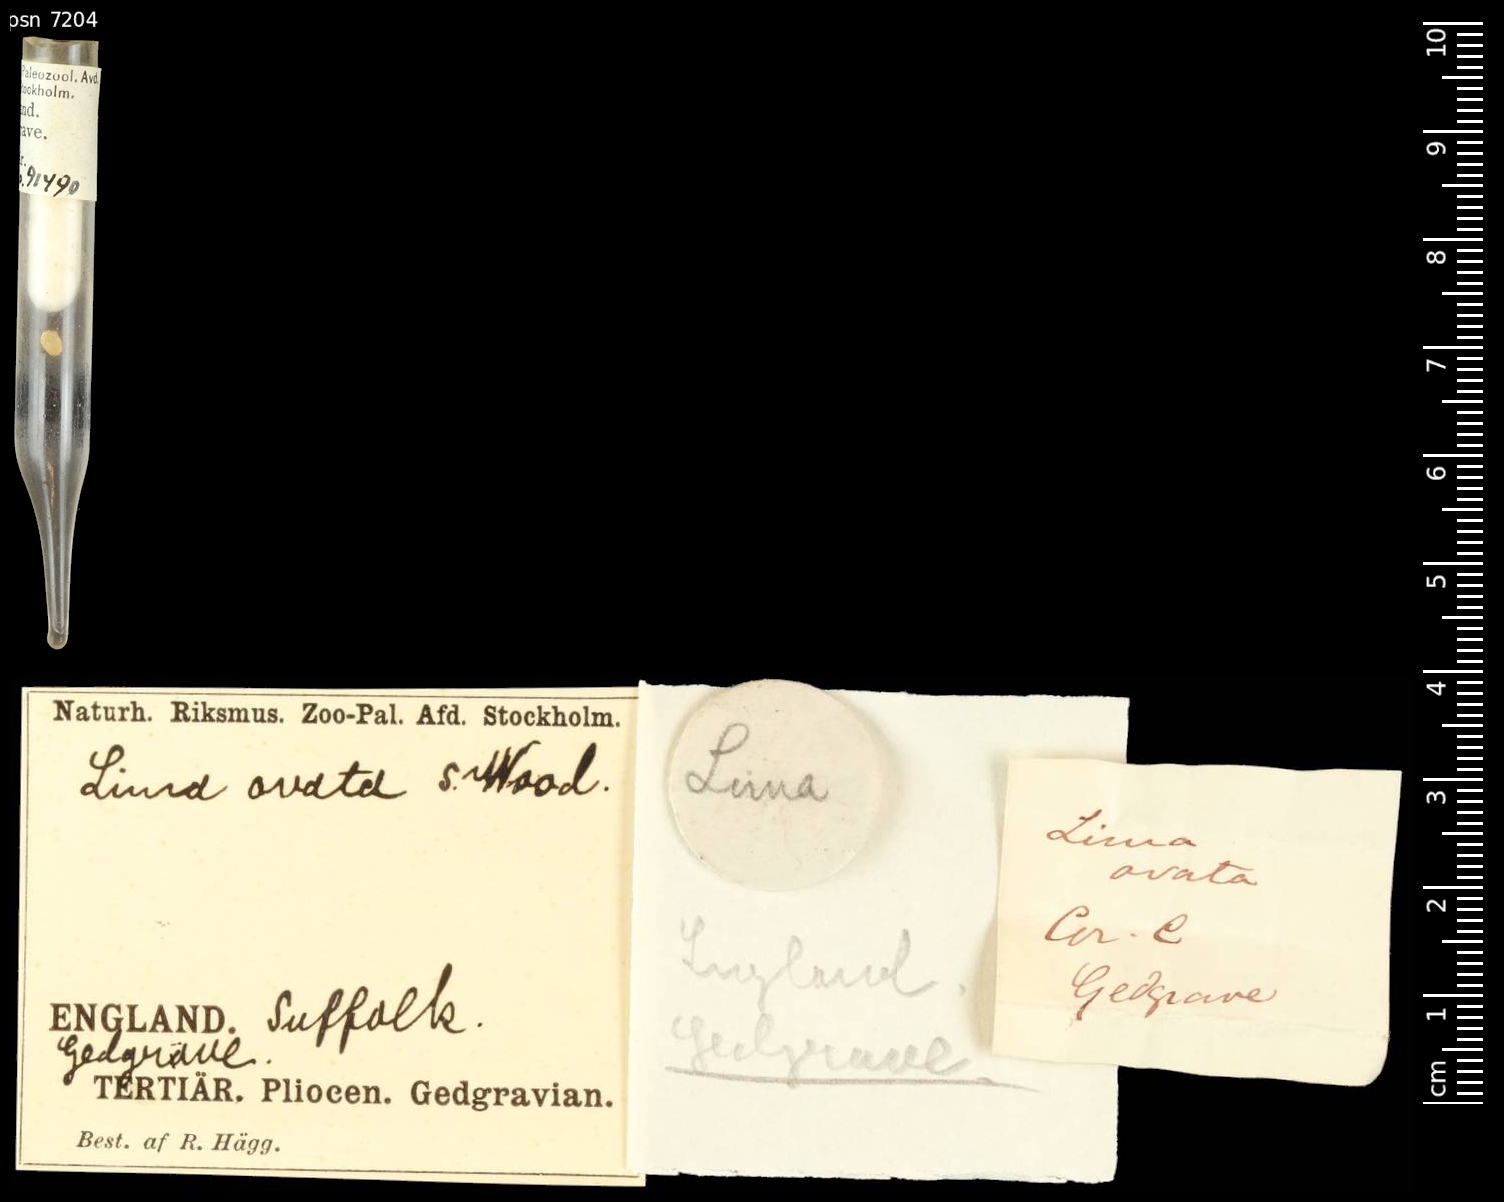 psn 7204
Paleozool. Avd.
tockholm.
nd.
ave.
91490
Naturh. Riksmus. Zoo-Pal. Afd. Stockholm.
Lima ovata S. Wood.
ENGLAND. Suffolk.
Gedgrave.
TERTIÄR. Pliocen. Gedgravian.
Best. af R. Hägg.
Lima
England.
Gedgrave.
Lima
ovata
Cor. C
Gedgrave
10
9
8
7
6
5
4
3
2
1
cm